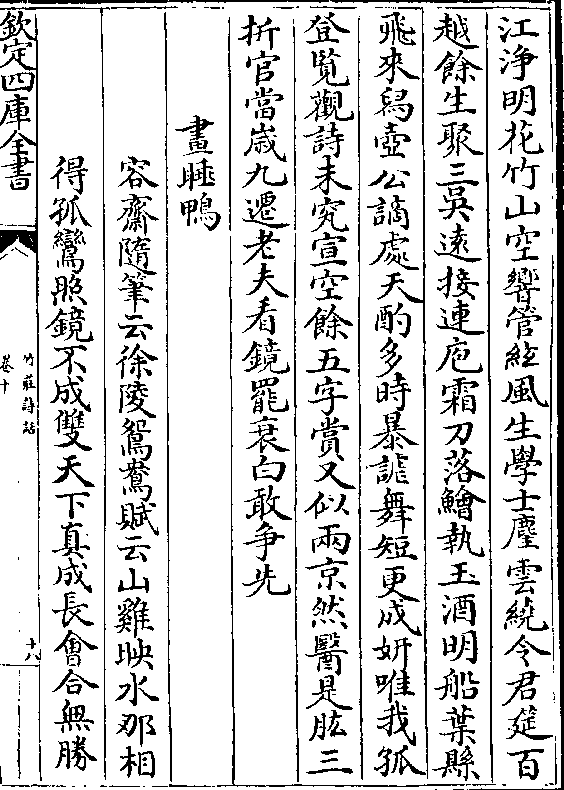 江浄明花竹山空響管絃風生學士麈雲繞令君筵百
越餘生聚三吳遠接連庖霜刀落鱠執玉酒明船葉縣
飛來舄壺公謫處天酌多時暴謔舞短更成妍唯我孤
登覧觀詩未究宣空餘五字賞又似兩京然醫是肱三
折官當歲九遷老夫看鏡罷衰白敢爭先
畫睡鴨
容齋隨筆云徐陵鴛鴦賦云山雞映水那相
得孤鸞照鏡不成雙天下真成長會合無勝
欽定四庫全書
竹莊詩話
卷十
十八